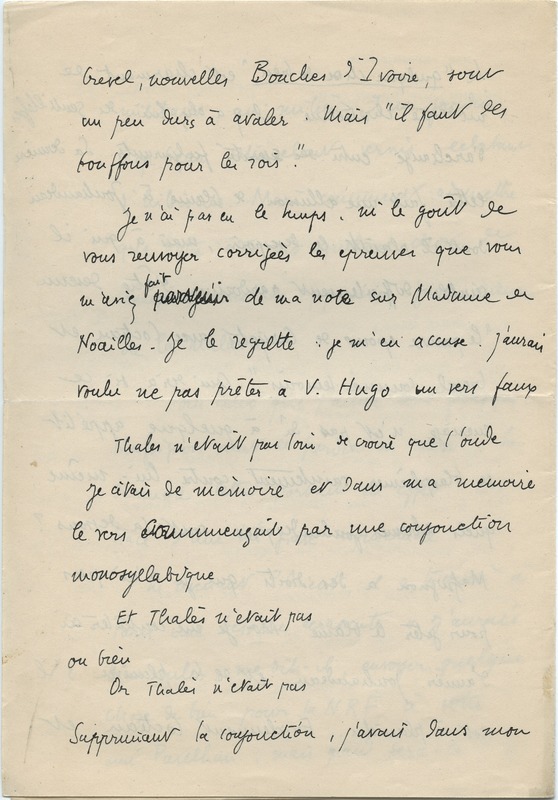 Crevel, nouvelles Bouches d'Ivoire, sont
un peu durs à avaler. Mais "il faut des
bouffons pour les rois."
Je n'ai pas eu le temps, ni le goût de
vous renvoyer corrigées les epreuves que vous
m'aviez fait de ma note sur Madame de
Noailles. Je le regrette. je m'en accuse. j'aurais
voulu ne pas prêter à V. Hugo un vers faux
Thales n'etait pas loin de croire que l'onde
Je citais de mèmoire et dans ma memoire
le vers commençait par une conjonction
monosyllabique
Et Thalès n'etait pas
ou bien
Or Thalès n'etait pas
Supprimant la conjonction, j'avais dans mon